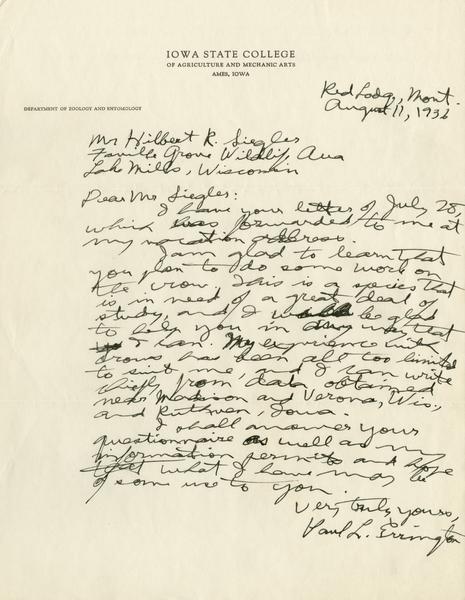 IOWA STATE COLLEGE
OF AGRICULTURE AND MECHANIC ARTS
AMES, IOWA
DEPARTMENT OF ZOOLOGY AND ENTOMOLOGY
Red Lodge, Mont.
August 11, 193
Mr Hilbert R. Siegler
Faville Grove Wildlife Area
Lake Mills, Wisconsin
Dear Mr Siegler:
I have your letter of July 28,
which was forwarded to me at
my vacation address.
I am glad to learn that
you plan to do some work on
the crow. This is a species that
is in need of a great deal of
study, and I would be glad
to help you in any way that
I can. My experience with
crows has been all too limited
to suit me, and I can write
chiefly from data obtained
near Madison and Verona, Wis.,
and Ruthven, Iowa.
I shall answer your
questionnaire as well as my
information permits and hope
that what I have may be
of some use to you.
Very truly yours,
Paul L. Errington